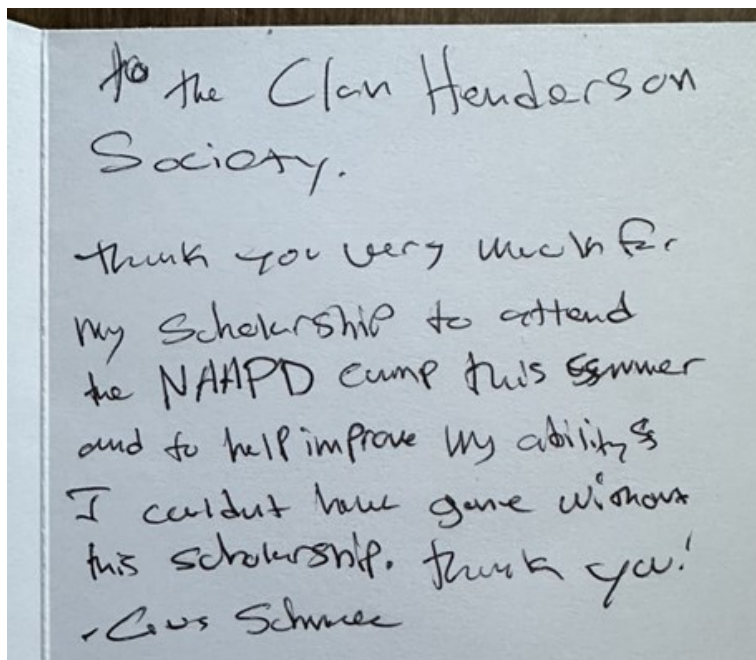 to the Clan Henderson
Society.
thank you very much for
my Scholarship to attend
the NAAPD camp this summer
and to help improve my abilitys
I couldnt have gone without
this scholarship. thank you!
- Gus